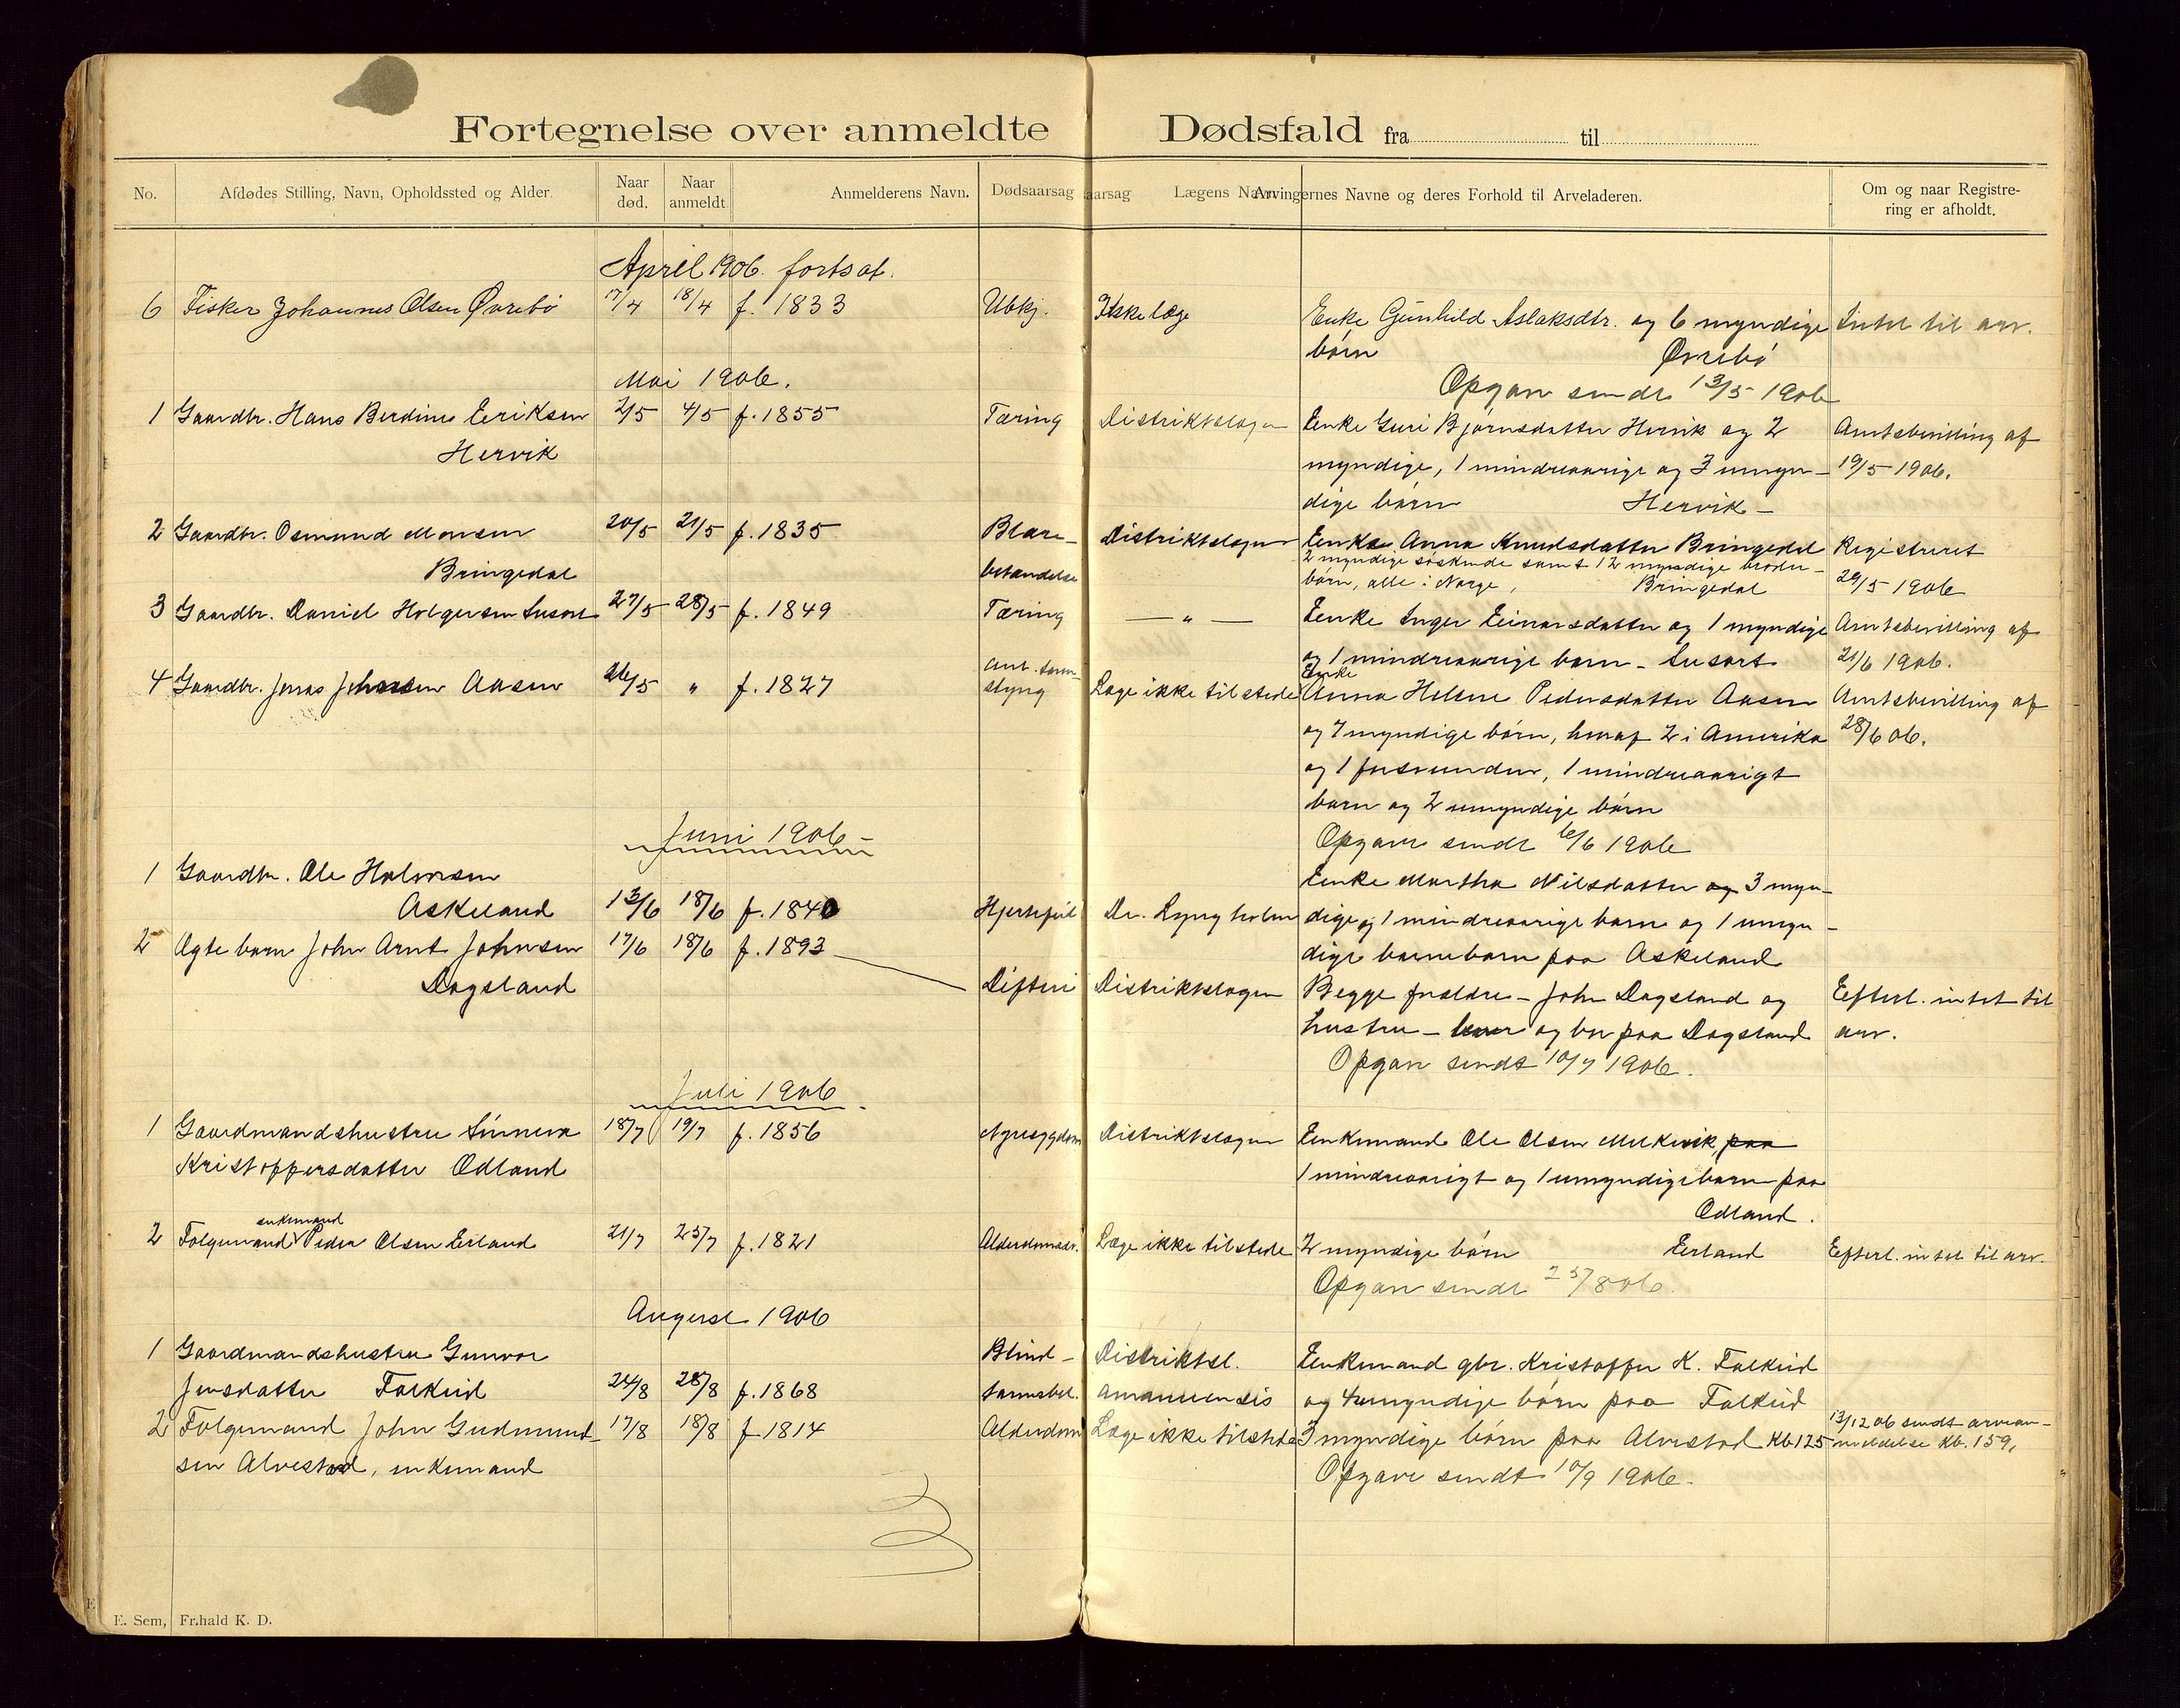 Fortegnelse over anmeldte Dødsfald fra til
No. Afdødes Stilling, Navn, Opholdssted og Alder. Naar død. Naar anmeldt Anmelderens Navn. Dødsaarsag aarsag Lægens Navn Arvingernes Navne og deres Forhold til Arveladeren. Om og naar Registrering er afholdt.
April 1906. fortsat.
6 Fisker Johannes Olsen Øvrebø 17/4 18/4 f. 1833 Ubkj. Ikke læge Enke Gunhild Aslaksdtr. og 6 myndige Intet til arv.
børn Øvrebø
Opgave sendt 13/5 1906
Mai 1906.
1 Gaardbr. Hans Berdines Eriksen 2/5 4/5 f. 1855 Tæring Distriktslægen Enke Guri Bjørnsdatter Hervik og 2 Amtsbevilling af
Hervik myndige, 1 mindreaarige og 3 umyn- 19/5 1906.
dige børn Hervik -
2 Gaardbr. Osmund Monsen 20/5 21/5 f. 1835 Blære- Distriktslægen Enke Anna Knudsdatter Bringedal Registreret
2 myndige søskende samt 12 myndige broder-
Bringedal betændelse børn, alle i Norge, Bringedal 29/5 1906
3 Gaardbr. Daniel Holgersen Susort 27/5 28/5 f. 1849 Tæring — " — Enke Inger Einarsdatter og 1 myndige Amtsbevilling af
og 1 mindreaarige barn - Susort 21/6 1906.
4 Gaardbr. Jonas Johnsen Aasen 26/5 " f. 1827 styng Læge ikke tilstede Enke Anna Helene Pedersdatter Aasen Amtsbevilling af
og 7 myndige børn, hvoraf 2 i Amerika 28/6 06.
og 1 forsvunden, 1 mindreaarigt
barn og 2 umyndige børn
Juni 1906 -
Opgave sendt 6/6 1906
1 Gaardbr. Ole Halvorsen Enke Martha Nilsdatter og 3 myn-
Askeland 13/6 18/6 f. 1840 Hjertefeil Dr. Lyngholm dige og 1 mindreaarige barn og 1 umyn-
2 Ægte barn John Arnt Johnsen 17/6 18/6 f. 1893 dige barnebarn paa Askeland
Dagsland Difteri Distriktslægen Begge forældre - John Dagsland og Efterl. intet til
hustru - lever og bor paa Dagsland arv.
Opgave sendt 10/7 1906.
Juli 1906
1 Gaardmandshustru Sinneva 18/7 19/7 f. 1856 Nyresygdom Distriktslægen Enkemand Ole Olsen Melkevik, paa
Kristoffersdatter Odland 1 mindreaarigt og 1 umyndige barn paa
Odland.
enkemand
2 Folgemand Peder Olsen Eriland 21/7 25/7 f. 1821 Alderdomssv. Læge ikke tilstede 2 myndige børn Erland Efterl. intet til arv.
Opgave sendt 25/8 06.
August 1906
1 Gaardmandshustru Gunvor Blind- Distriktsl. Enkemand gbr. Kristoffer K. Falkeid
Jensdatter Falkeid 24/8 28/8 f. 1868 tarmsbet. amanuensis og 4 umyndige børn paa Falkeid
2 Folgemand John Gudmund- 17/8 18/8 f 1814 Alderdom Læge ikke tilstede 3 myndige børn paa Alvestad Kb. 125 13/12 06 sendt arvean-
sen Alvestad, enkemand meldelse Kb. 159,
Opgave sendt 10/9 1906.
E. Sem, Fr.hald K. D.